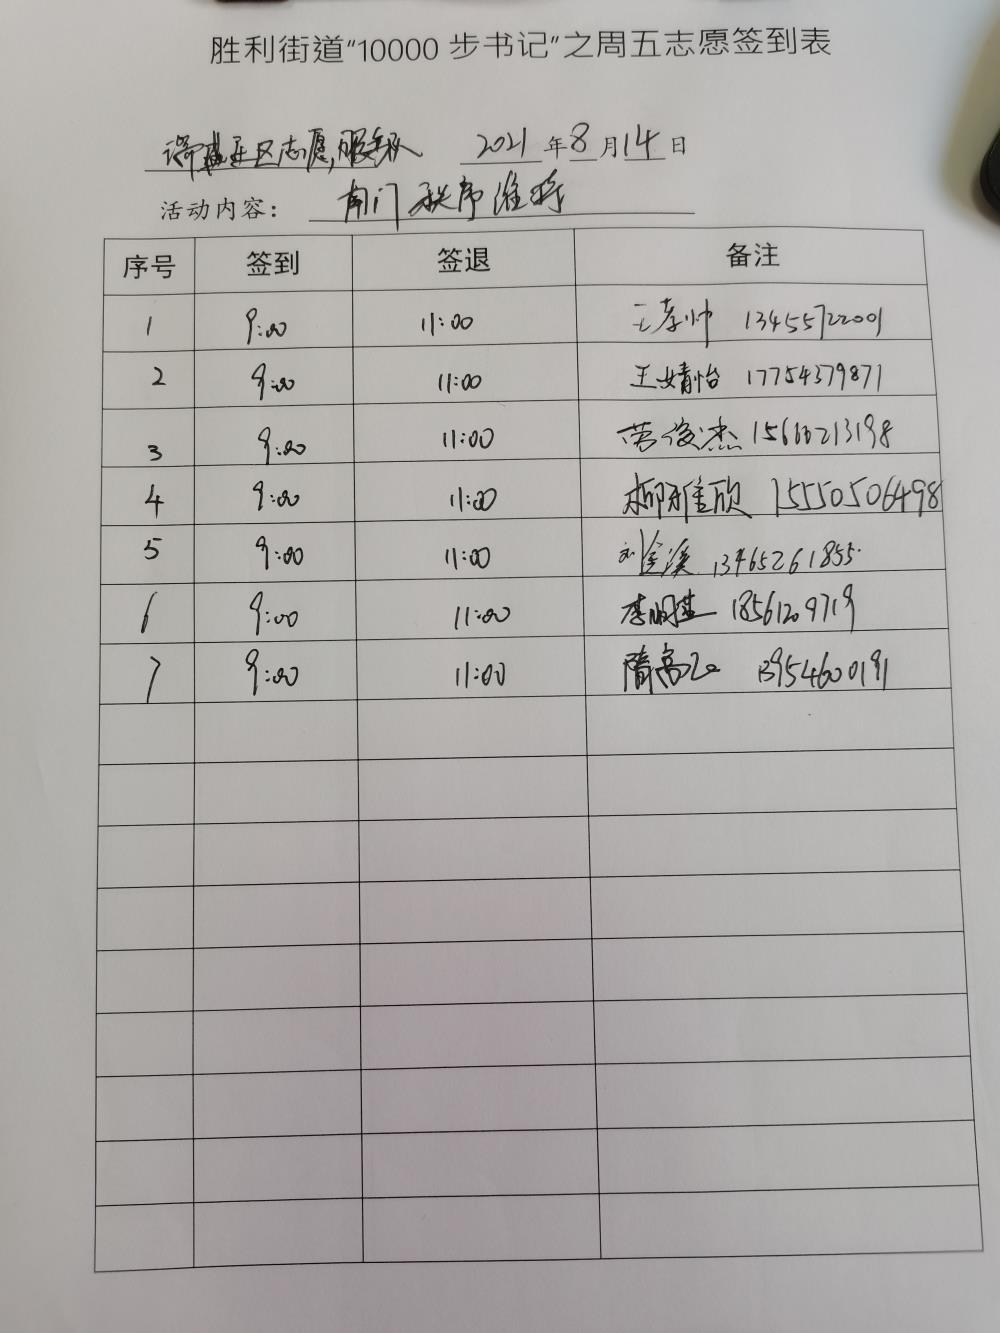 胜利街道“10000 步书记”之周五志愿签到表
社区志愿服务队 2021 年 8 月 14 日
活动内容： 南门秩序维持
序号 签到 签退 备注
1 9:00 11:00 王孝帅 13455722001
2 9:00 11:00 王婧怡 17754379871
3 9:00 11:00 劳俊杰 15666213198
4 9:00 11:00 柳雅欣 15550506498
5 9:00 11:00 刘金溪 13465261855
6 9:00 11:00 李明 18561209719
7 9:00 11:00 隋高 13954600191